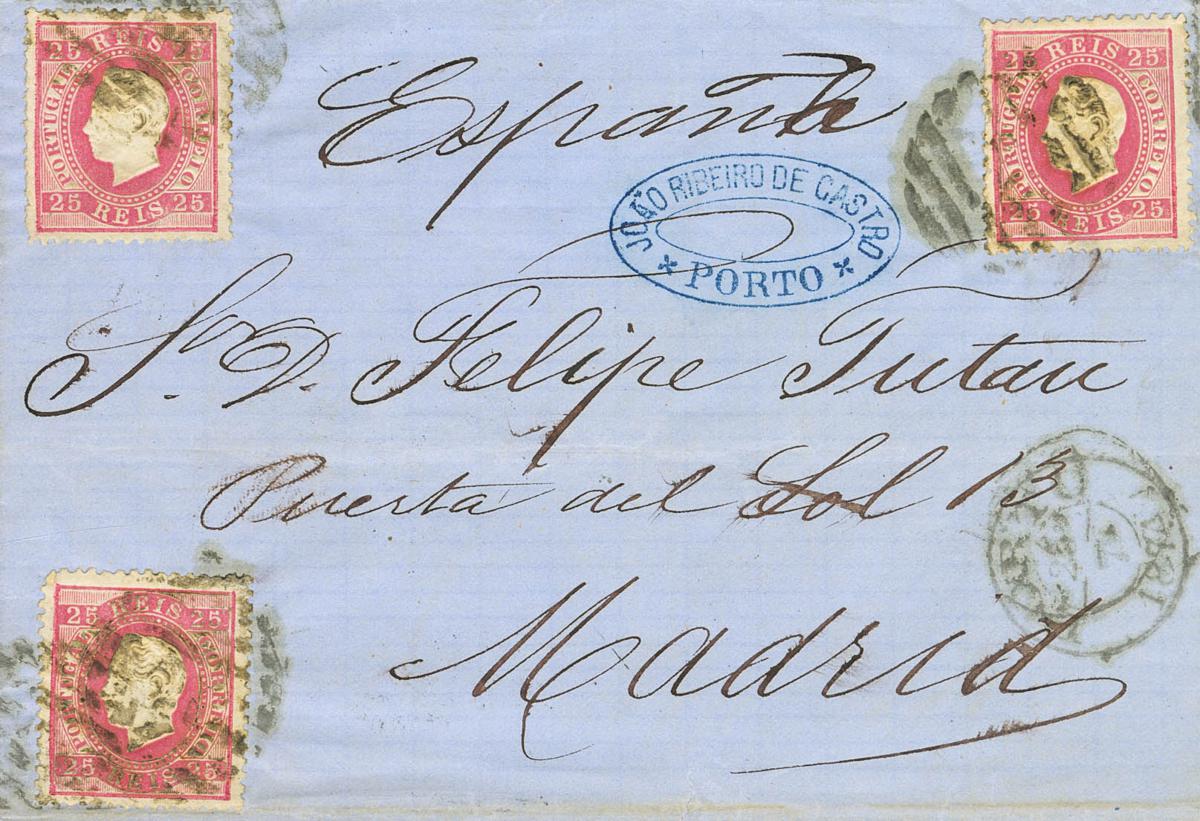 25 REIS 25
PORTUGAL CORREIO
25 REIS 25
España
25 REIS 25
PORTUGAL CORREIO
25 REIS 25
JOÃO RIBEIRO DE CASTRO
* PORTO *
Sr. D. Felipe Tutau
Puerta del Sol 13
Madrid
25 REIS 25
PORTUGAL CORREIO
25 REIS 25